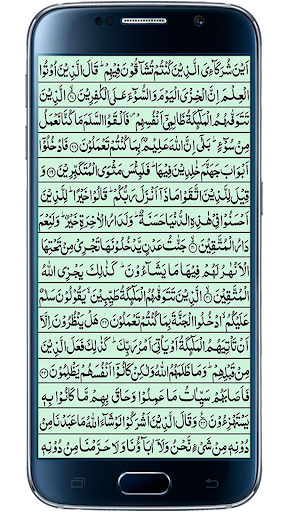 اَيۡنَ شُرَكَآءِىَ الَّذِيۡنَ كُنۡتُمۡ تُشَآقُّوۡنَ فِيۡهِمۡ‌ؕ قَالَ الَّذِيۡنَ اُوۡتُوا
الۡعِلۡمَ اِنَّ الۡخِزۡىَ الۡيَوۡمَ وَالسُّوۡٓءَ عَلَى الۡكٰفِرِيۡنَۙ‏ ﴿۲۷﴾ الَّذِيۡنَ
تَتَوَفّٰٮهُمُ الۡمَلٰۤـئِكَةُ ظَالِمِىۡۤ اَنۡفُسِهِمۡ‌ فَاَلۡقَوُا السَّلَمَ مَا كُنَّا نَعۡمَلُ
مِنۡ سُوۡۤءٍؕ بَلٰٓى اِنَّ اللّٰهَ عَلِيۡمٌۢ بِمَا كُنۡتُمۡ تَعۡمَلُوۡنَ‏ ﴿۲۸﴾ فَادۡخُلُوۡۤا
اَبۡوَابَ جَهَنَّمَ خٰلِدِيۡنَ فِيۡهَا‌ؕ فَلَبِئۡسَ مَثۡوَى الۡمُتَكَبِّرِيۡنَ‏ ﴿۲۹﴾ وَ
قِيۡلَ لِلَّذِيۡنَ اتَّقَوۡا مَاذَاۤ اَنۡزَلَ رَبُّكُمۡ‌ؕ قَالُوۡا خَيۡرًاؕ‌ لِّـلَّذِيۡنَ
اَحۡسَنُوۡا فِىۡ هٰذِهِ الدُّنۡيَا حَسَنَةٌ‌ ؕ وَلَدَارُ الۡاٰخِرَةِ خَيۡرٌ‌ ؕ وَلَنِعۡمَ
دَارُ الۡمُتَّقِيۡنَۙ‏ ﴿۳۰﴾ جَنّٰتُ عَدۡنٍ يَّدۡخُلُوۡنَهَا تَجۡرِىۡ مِنۡ تَحۡتِهَا
الۡاَنۡهٰرُ‌ لَهُمۡ فِيۡهَا مَا يَشَآءُوۡنَ‌ؕ كَذٰلِكَ يَجۡزِى اللّٰهُ
الۡمُتَّقِيۡنَۙ‏ ﴿۳۱﴾ الَّذِيۡنَ تَتَوَفّٰٮهُمُ الۡمَلٰۤـئِكَةُ طَيِّبِيۡنَ‌ ۙ يَقُوۡلُوۡنَ سَلٰمٌ
عَلَيۡكُمُۙ ادۡخُلُوا الۡجَـنَّةَ بِمَا كُنۡتُمۡ تَعۡمَلُوۡنَ‏ ﴿۳۲﴾ هَلۡ يَنۡظُرُوۡنَ اِلَّاۤ
اَنۡ تَاۡتِيَهُمُ الۡمَلٰۤـئِكَةُ اَوۡ يَاۡتِىَ اَمۡرُ رَبِّكَ‌ؕ كَذٰلِكَ فَعَلَ الَّذِيۡنَ
مِنۡ قَبۡلِهِمۡ‌ؕ وَمَا ظَلَمَهُمُ اللّٰهُ وَلٰـكِنۡ كَانُوۡۤا اَنۡفُسَهُمۡ يَظۡلِمُوۡنَ‏ ﴿۳۳﴾
فَاَصَابَهُمۡ سَيِّاٰتُ مَا عَمِلُوۡا وَحَاقَ بِهِمۡ مَّا كَانُوۡا بِهٖ
يَسۡتَهۡزِءُوۡنَ‏ ﴿۳۴﴾ وَقَالَ الَّذِيۡنَ اَشۡرَكُوۡا لَوۡ شَآءَ اللّٰهُ مَا عَبَدۡنَا مِنۡ
دُوۡنِهٖ مِنۡ شَىۡءٍ نَّحۡنُ وَلَاۤ اٰبَآؤُنَا وَلَا حَرَّمۡنَا مِنۡ دُوۡنِهٖ